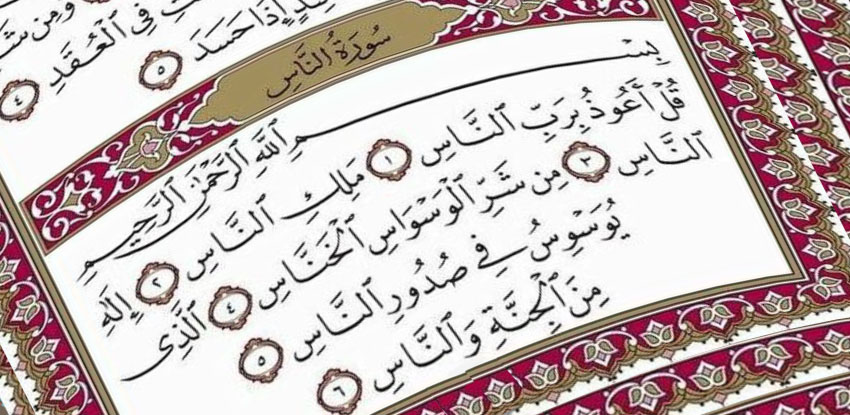 ومن ش
ت في العقد ٤
سد إذا حسد ٥
سُورَةُ النَّاسِ
بِسْمِ ٱللَّهِ ٱلرَّحْمَٰنِ ٱلرَّحِيمِ
قُلْ أَعُوذُ بِرَبِّ ٱلنَّاسِ ١ مَلِكِ ٱلنَّاسِ ٢ إِلَٰهِ
ٱلنَّاسِ ٣ مِن شَرِّ ٱلْوَسْوَاسِ ٱلْخَنَّاسِ ٤ ٱلَّذِى
يُوَسْوِسُ فِى صُدُورِ ٱلنَّاسِ ٥
مِنَ ٱلْجِنَّةِ وَٱلنَّاسِ ٦